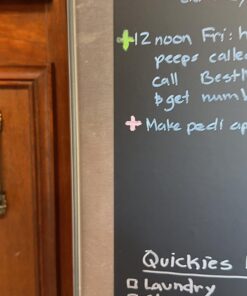 12 noon Fri: h
peeps calle
call Best
$ get num
Make pedi ap
Quickies
Laundry